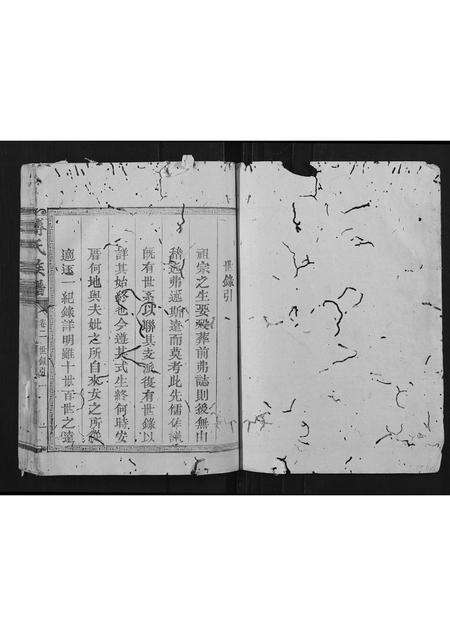 世錄引
祖宗之生娶歿葬前弗誌則後無由
稽述弗述斯遠而莫考此先儒
既有世系以聯其支派復有世錄以
詳其始終也今遵其式生終何時安
厝何地與夫妣之所自來女之所
適逐一紀錄詳明雖十世百世之遠
氏族譜
卷二
世錄引